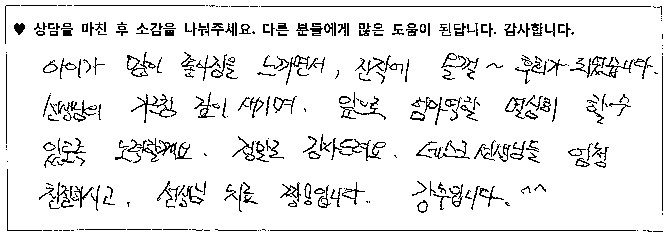 ♥ 상담을 마친 후 소감을 나눠주세요. 다른 분들에게 많은 도움이 된답니다. 감사합니다.
아이가 많이 좋아짐을 느끼면서, 진작에 올걸~ 후회가 되었습니다.
선생님의 가르침 깊이 새기며. 앞으로 엄마역할 열심히 할 수
있도록 노력할게요. 정말로 감사드려요. 데스크 선생님들 엄청
친절하시고, 선생님 치료 짱입니다. 강추입니다. ^^